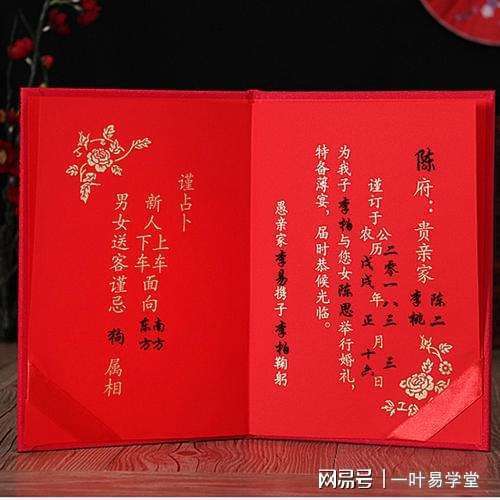 陈府：贵亲家 陈二 李桃
谨订于公农历 二零一八 戊戌 年 三 正 月 三 十六 日
为我子李柏与您女陈思举行婚礼，
特备薄宴，届时恭候光临。
愚亲家李易携子李柏鞠躬
谨占卜
新人上车下车面向南方东方
男女送客谨忌狗属相
网易号 一叶易学堂